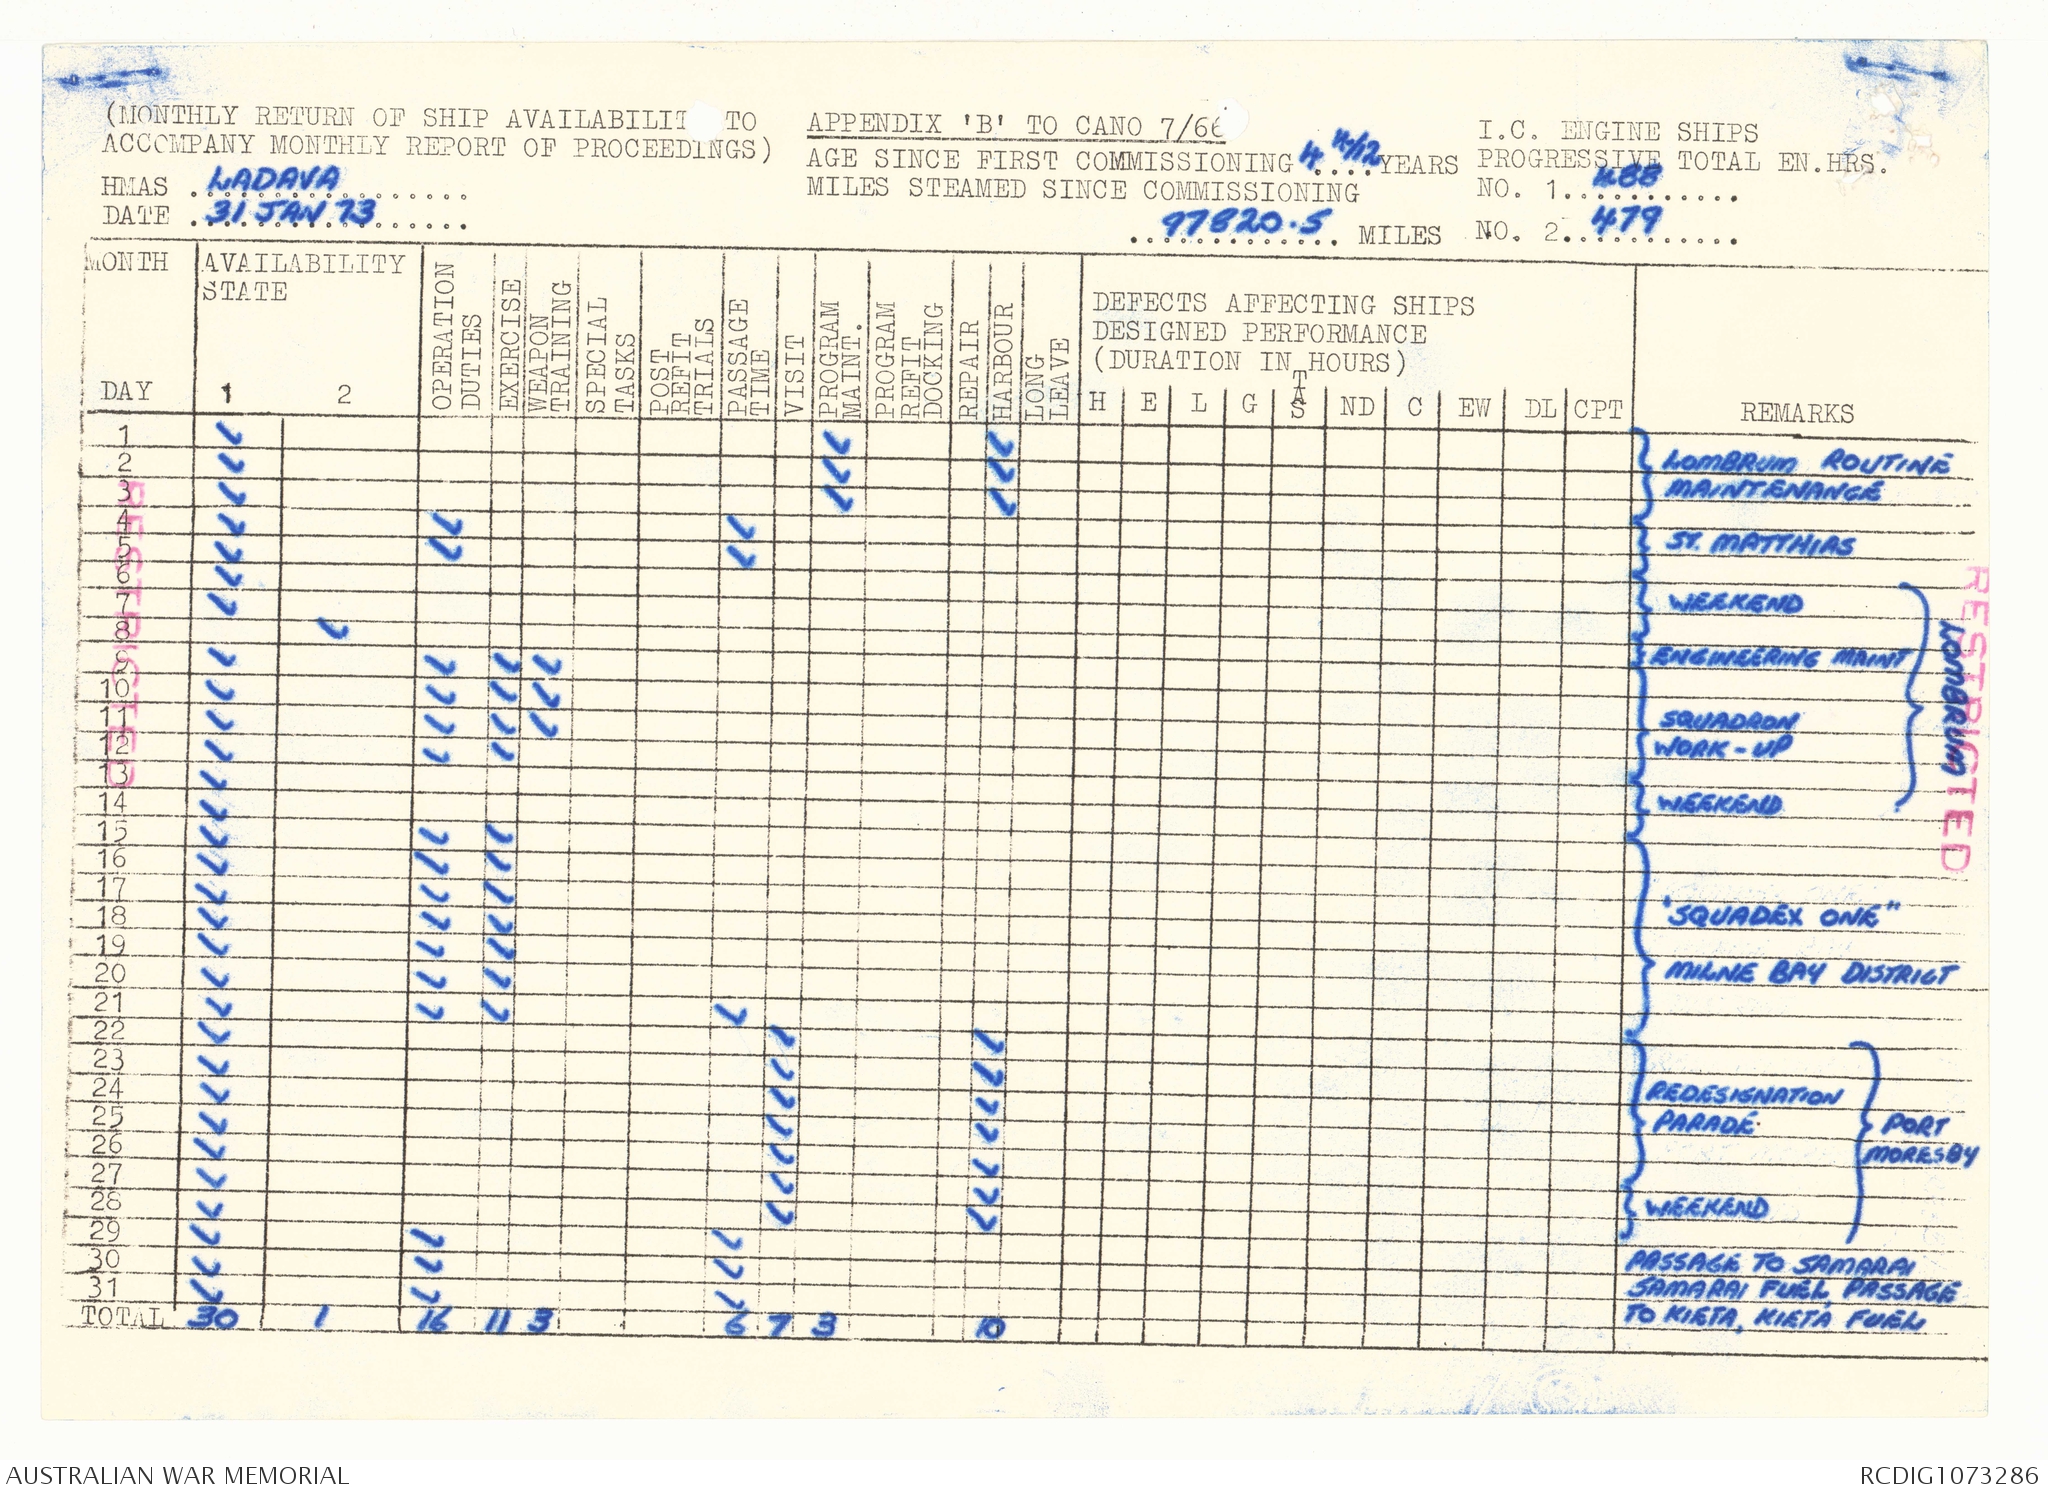 (MONTHLY RETURN OF SHIP AVAILABILI TO
ACCOMPANY MONTHLY REPORT OF PROCEEDINGS)
HMAS LADAVA
DATE 31 JAN 73
APPENDIX 'B' TO CANO 7/66
AGE SINCE FIRST COMMISSIONING 4 4/12 YEARS
MILES STEAMED SINCE COMMISSIONING
97820.5 MILES
I.C. ENGINE SHIPS
PROGRESSIVE TOTAL EN.HRS.
NO. 1. 488
NO. 2. 479
MONTH
DAY
AVAILABILITY
STATE
1 2
OPERATION
DUTIES
EXERCISE
WEAPON
TRAINING
SPECIAL
TASKS
POST
REFIT
TRIALS
PASSAGE
TIME
VISIT
PROGRAM
MAINT.
PROGRAM
REFIT
DOCKING
REPAIR
HARBOUR
LONG
LEAVE
DEFECTS AFFECTING SHIPS
DESIGNED PERFORMANCE
(DURATION IN HOURS)
H E L G TAS ND C EW DL CPT
REMARKS
1
2
3
4
5
6
7
8
9
10
11
12
13
14
15
16
17
18
19
20
21
22
23
24
25
26
27
28
29
30
31
TOTAL 30 1 16 11 3 6 7 3 10
LOMBRUM ROUTINE
MAINTENANCE
ST. MATTHIAS
WEEKEND
ENGINEERING MAINT
SQUADRON
WORK-UP
WEEKEND
LOMBRUM
"SQUADEX ONE"
MILNE BAY DISTRICT
REDESIGNATION
PARADE
WEEKEND
PORT
MORESBY
PASSAGE TO SAMARAI
SAMARAI FUEL, PASSAGE
TO KIETA, KIETA FUEL
RESTRICTED
RESTRICTED
AUSTRALIAN WAR MEMORIAL
RCDIG1073286